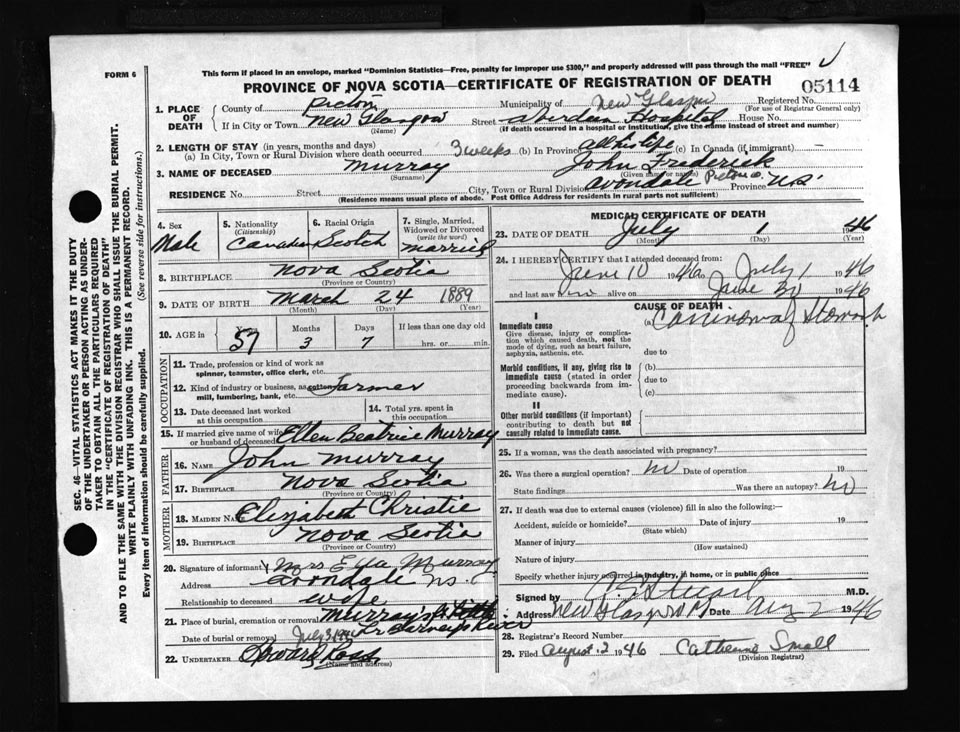 FORM 6
This form if placed in an envelope, marked "Dominion Statistics—Free, penalty for improper use $300," and properly addressed will pass through the mail "FREE"
PROVINCE OF NOVA SCOTIA—CERTIFICATE OF REGISTRATION OF DEATH
05114
1. PLACE OF DEATH
County of Pictou Municipality of New Glasgow Registered No.
(For use of Registrar General only)
If in City or Town New Glasgow Street Aberdeen Hospital House No.
(Name) (If death occurred in a hospital or institution, give the name instead of street and number)
2. LENGTH OF STAY (in years, months and days)
(a) In City, Town or Rural Division where death occurred 3 weeks (b) In Province All his life (c) In Canada (if immigrant)
3. NAME OF DECEASED Murray John Frederick
(Surname) (Given name or names)
RESIDENCE No. Street City, Town or Rural Division Avondale Pictou Co. Province N.S.
(Residence means usual place of abode. Post Office Address for residents in rural parts not sufficient)
SEC. 46—VITAL STATISTICS ACT MAKES IT THE DUTY
OF THE UNDERTAKER OR PERSON ACTING AS UNDER-
TAKER TO OBTAIN ALL THE PARTICULARS REQUIRED
IN THE "CERTIFICATE OF REGISTRATION OF DEATH"
AND TO FILE THE SAME WITH THE DIVISION REGISTRAR WHO SHALL ISSUE THE BURIAL PERMIT.
WRITE PLAINLY WITH UNFADING INK. THIS IS A PERMANENT RECORD.
Every item of information should be carefully supplied. (See reverse side for instructions.)
4. Sex
Male
5. Nationality
(Citizenship)
Canadian
6. Racial Origin
Scotch
7. Single, Married, Widowed or Divorced
(write the word)
Married
8. BIRTHPLACE Nova Scotia
(Province or Country)
9. DATE OF BIRTH March 24 1889
(Month) (Day) (Year)
10. AGE in Years Months Days If less than one day old
57 3 7 hrs. or min.
OCCUPATION
11. Trade, profession or kind of work as
spinner, teamster, office clerk, etc.
12. Kind of industry or business, as cotton Farmer
mill, lumbering, bank, etc.
13. Date deceased last worked
at this occupation
14. Total yrs. spent in
this occupation
15. If married give name of wife
or husband of deceased Ellen Beatrice Murray
FATHER
16. NAME John Murray
17. BIRTHPLACE Nova Scotia
(Province or Country)
MOTHER
18. MAIDEN NAME Elizabeth Christie
19. BIRTHPLACE Nova Scotia
(Province or Country)
20. Signature of informant Mrs Ella Murray
Address Avondale N.S.
Relationship to deceased wife
21. Place of burial, cremation or removal Murray's
Barneys River
Date of burial or removal July 3
22. UNDERTAKER Ross
(Name and address)
MEDICAL CERTIFICATE OF DEATH
23. DATE OF DEATH July 1 1946
(Month) (Day) (Year)
24. I HEREBY CERTIFY that I attended deceased from:
June 10 1946 July 1 1946
and last saw alive on June 30 1946
CAUSE OF DEATH
I
Immediate cause
Give disease, injury or complica-
tion which caused death, not the
mode of dying, such as heart failure,
asphyxia, asthenia, etc.
(a) Carcinoma of Stomach
due to
Morbid conditions, if any, giving rise to
immediate cause (stated in order
proceeding backwards from im-
mediate cause).
(b)
due to
(c)
II
Other morbid conditions (if important)
contributing to death but not
causally related to immediate cause.
25. If a woman, was the death associated with pregnancy?
26. Was there a surgical operation? no Date of operation 19
State findings Was there an autopsy? no
27. If death was due to external causes (violence) fill in also the following:—
Accident, suicide or homicide? Date of injury 19
(State which)
Manner of injury
(How sustained)
Nature of injury
Specify whether injury occurred in industry, in home, or in public place
Signed by M.D.
Address New Glasgow Date Aug 2 1946
28. Registrar's Record Number
29. Filed August 2 1946 Catherine Small
(Division Registrar)